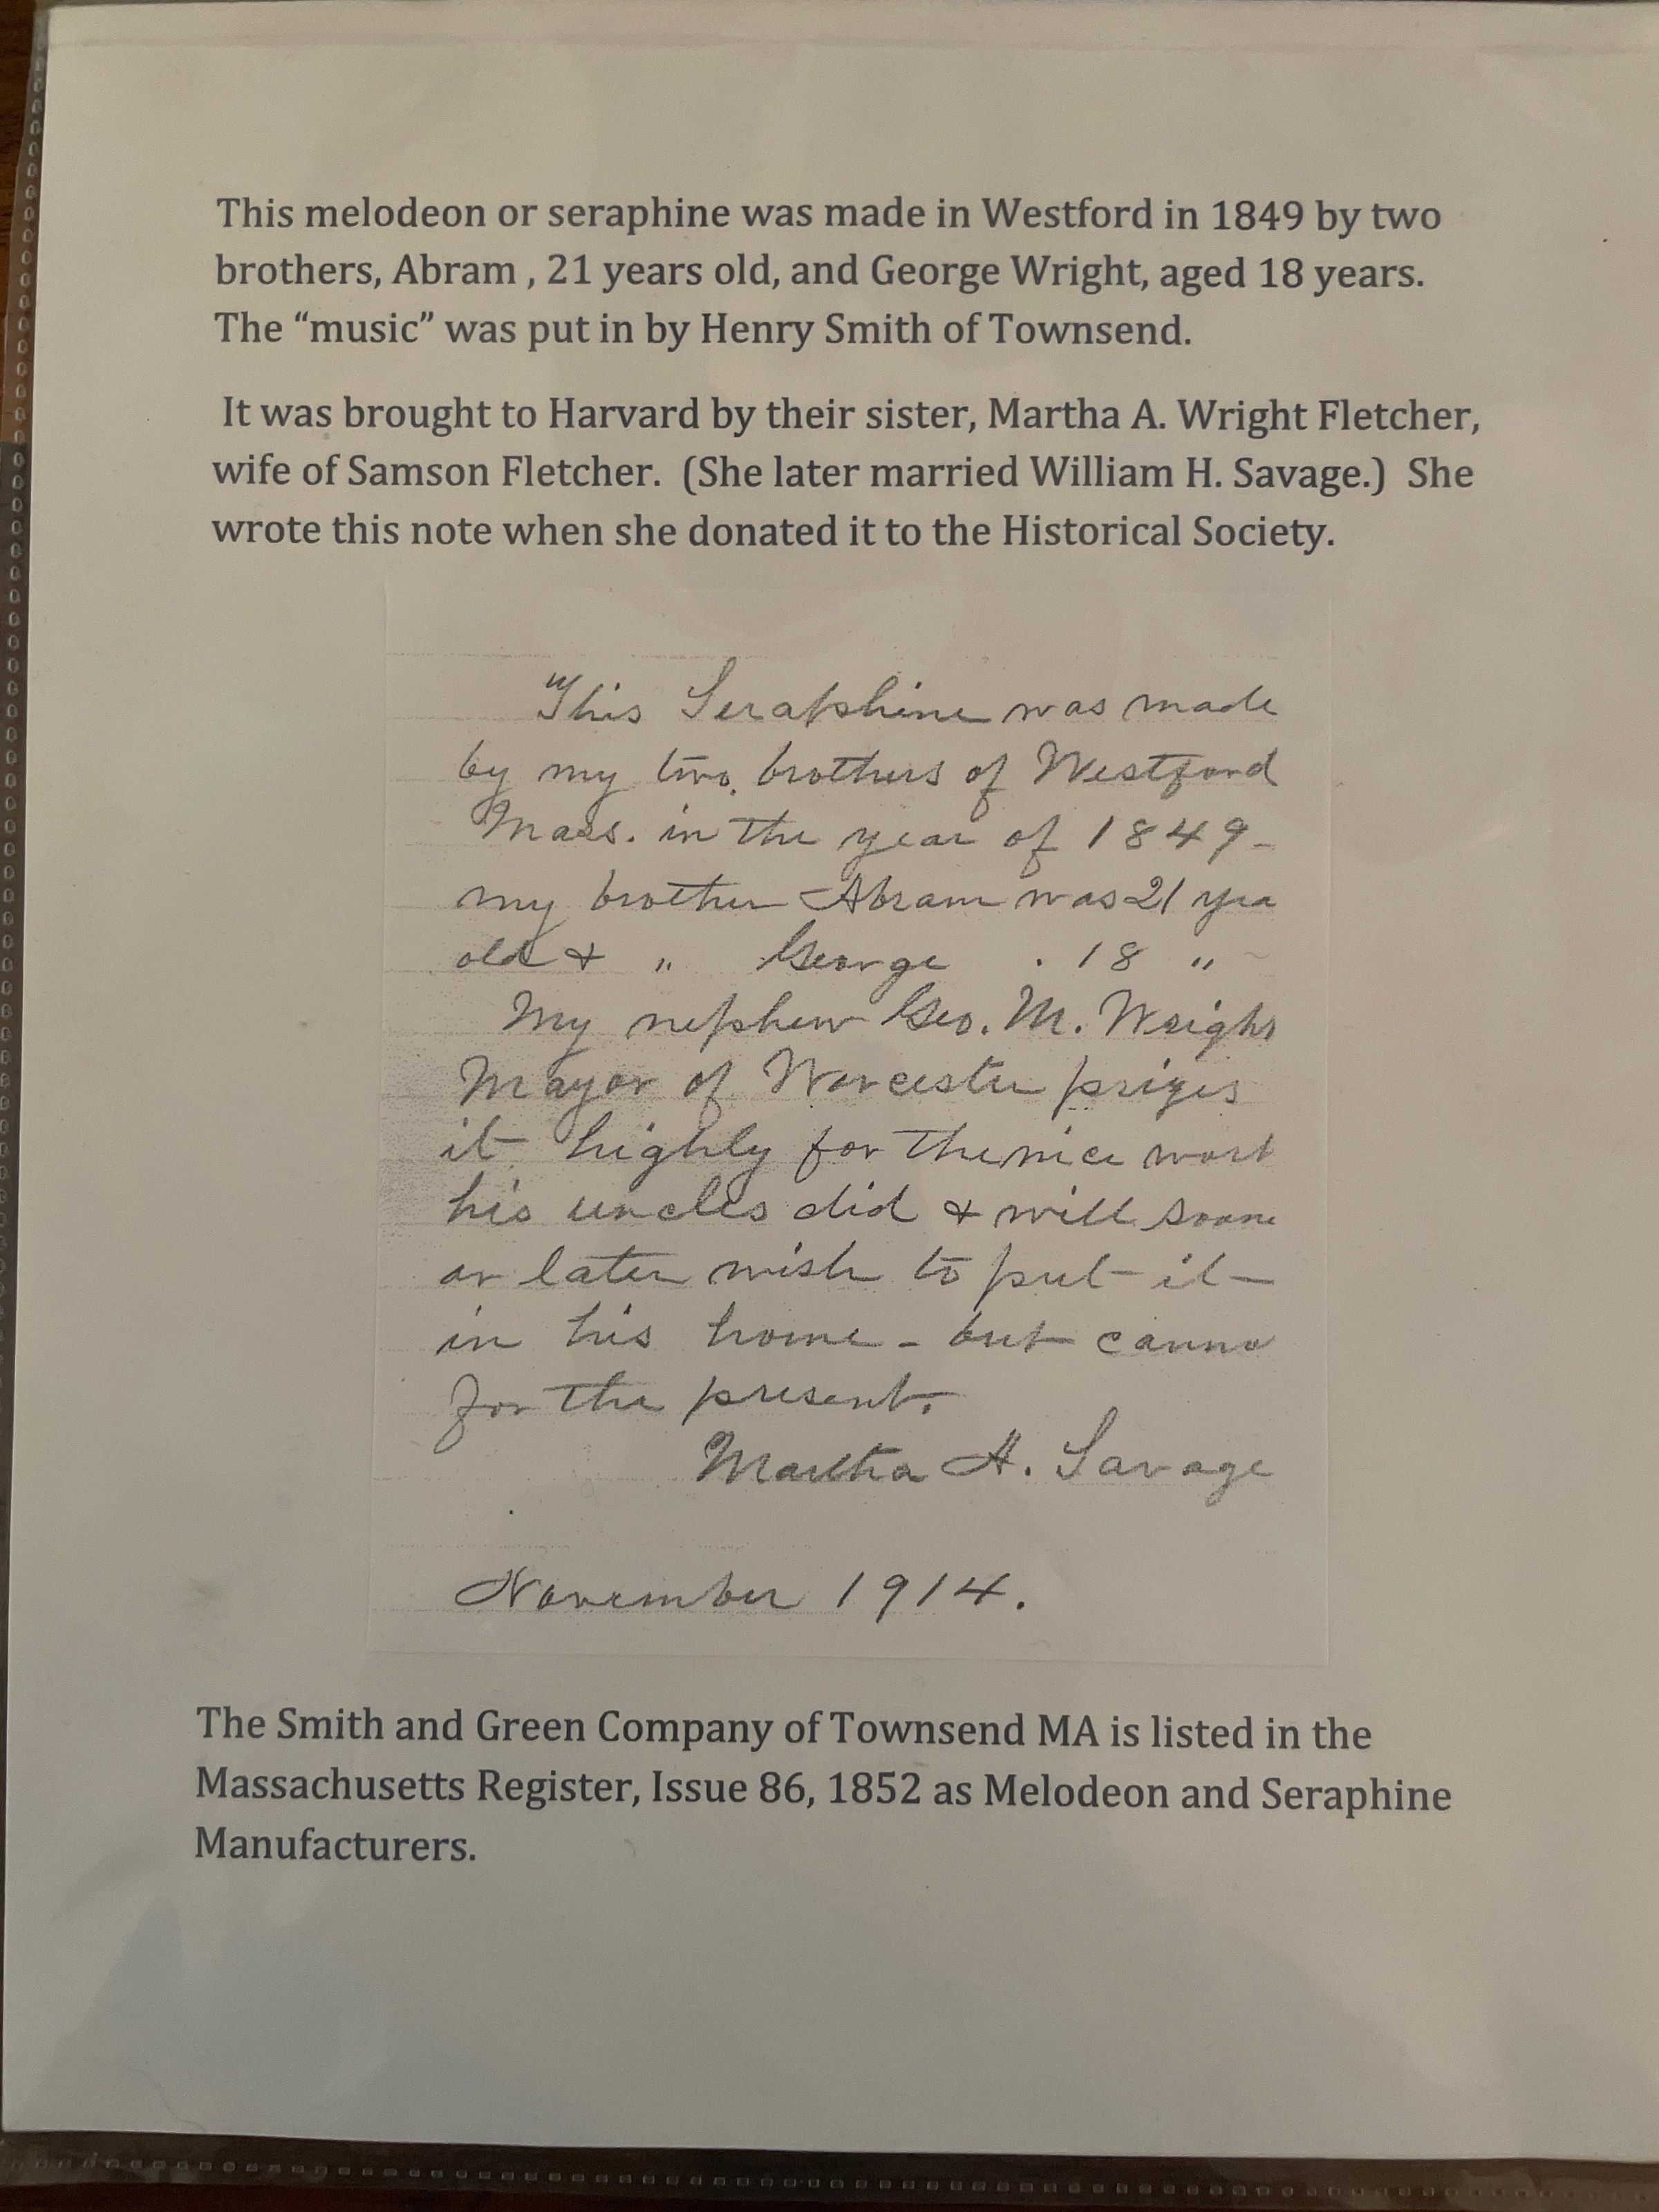 This melodeon or seraphine was made in Westford in 1849 by two
brothers, Abram , 21 years old, and George Wright, aged 18 years.
The “music” was put in by Henry Smith of Townsend.
It was brought to Harvard by their sister, Martha A. Wright Fletcher,
wife of Samson Fletcher.  (She later married William H. Savage.)  She
wrote this note when she donated it to the Historical Society.
This Seraphine was made
by my two brothers of Westford
Mass. in the year of 1849-
my brother Abram was 21 yrs
old & " George . 18 "
My nephew Geo. M. Wright
Mayor of Worcester prizes
it highly for the nice work
his uncles did & will soone
or later wish to put it
in his home - but canno
for the present.
Martha A. Savage
November 1914.
The Smith and Green Company of Townsend MA is listed in the
Massachusetts Register, Issue 86, 1852 as Melodeon and Seraphine
Manufacturers.